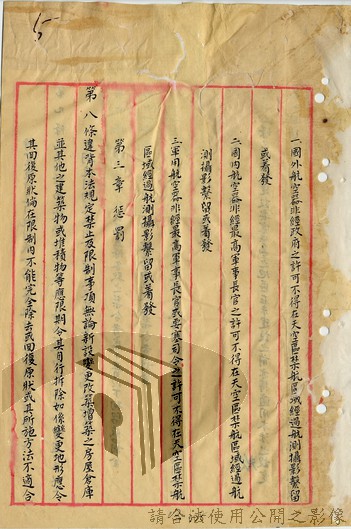 5
一、國外航空器非經政府之許可不得在天空區禁航區域經過航測攝影繫留
或着發
二、國內航空器非經最高軍事長官之許可不得在天空區禁航區域經過航
測攝影繫留或着發
三、軍用航空器非經最高軍事長官或要塞司令之許可不得在天空區禁航
區域經過航測攝影繫留或着發
第三章 懲罰
第八條 違背本法規定禁止及限制事項無論新設變更改築增築之房屋倉庫
並其他之建築物或堆積物等應限期令其自行拆除如係變更地形應令
其回復原狀倘在限制內不能完全除去或回復原狀或其所施方法不適合
請合法使用公開之影像